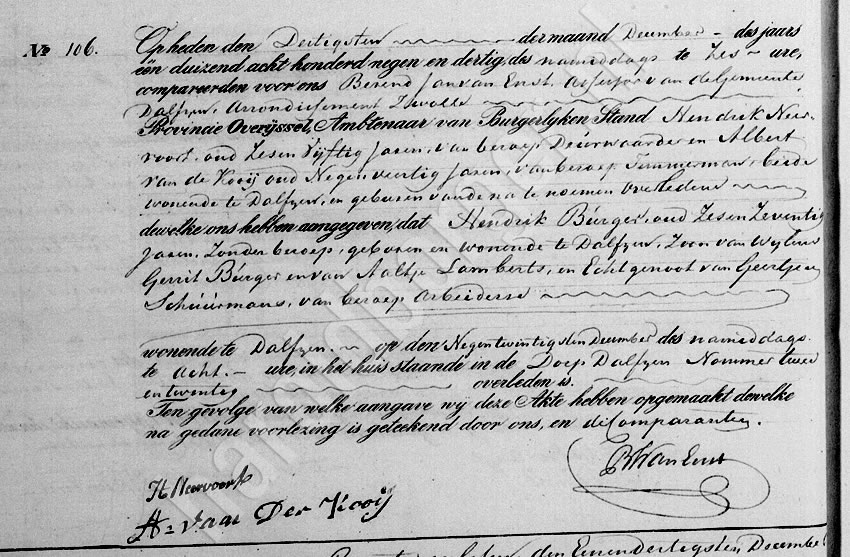 No 106. Op heden den Dertigsten der maand December des jaars
één duizend acht honderd negen en dertig, des namiddags te Zes ure,
compareerden voor ons Berend Jan van Enst, Assessor van de Gemeente
Dalfzen, Arrondissement Zwolle
Provincie Overijssel, Ambtenaar van Burgerlyken Stand Hendrik Neer-
voort, oud Zes en Vyftig Jaren, van beroep Deurwaarder en Albert
van de Kooij oud Negen veertig Jaren, van beroep Timmerman, beide
wonende te Dalfzen, en geburen van de na te noemen overledene
dewelke ons hebben aangegeven, dat Hendrik Bùrger, oud Zes en Zeventig
Jaren, Zonder beroep, geboren en wonende te Dalfzen, Zoon van Wylen
Gerrit Bùrger en van Aaltje Lamberts, en Echtgenoot van Geertjen
Schùùrmans, van beroep Arbeiderse
wonende te Dalfzen. op den Negentwintigsten December des namiddags
te acht. ure, in het huis staande in de Dorp Dalfzen Nommer twee
en twintig overleden is.
Ten gevolge van welke aangave wy deze Akte hebben opgemaakt dewelke
na gedane voorlezing is geteekend door ons, en de Comparanten.
BJ Van Enst
H Neervoort
A: van Der Kooij
den Eenendertigsten December